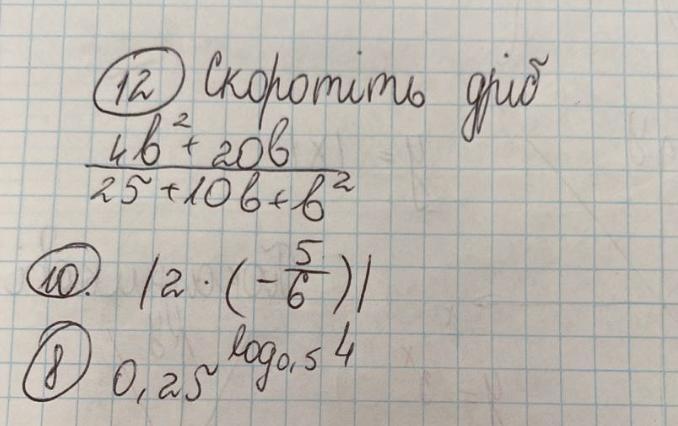 12 Скоротіть дріб
4b² + 20b
25 + 10b + b²
10. |2 · (-5/6)|
8 0,25^log₀,₅4